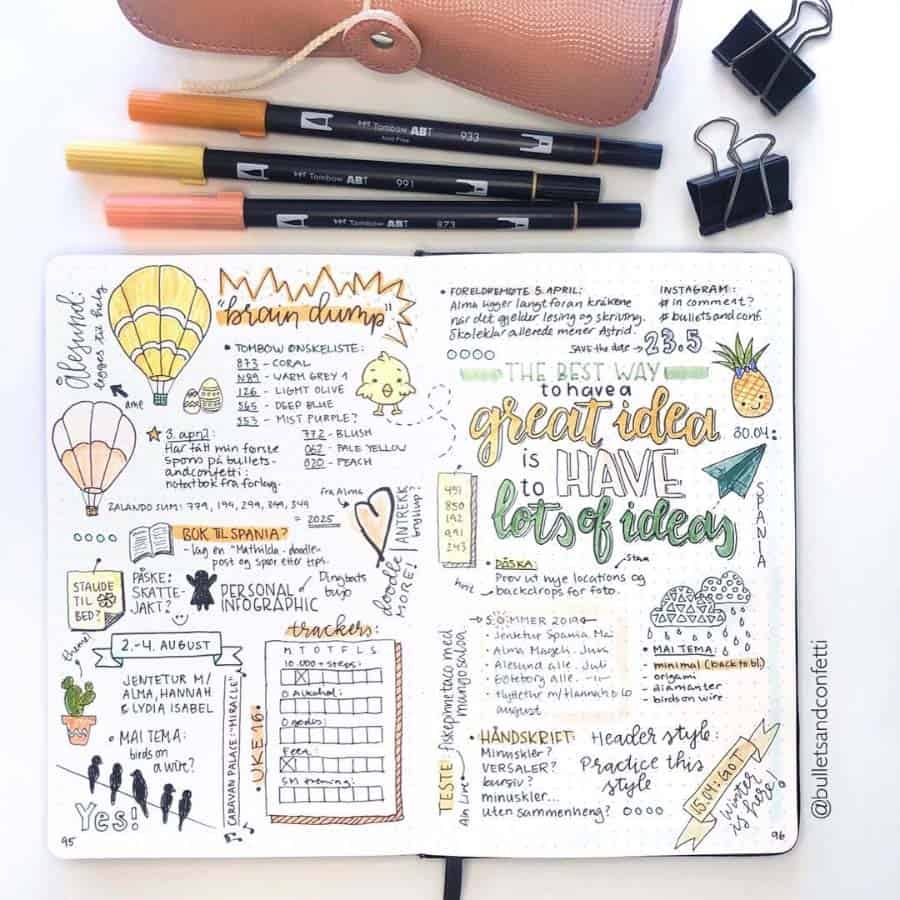 Tombow ABT
933
Tombow ABT
991
Tombow ABT
873
Ålesund:
legges til helg
"brain dump"
• TOMBOW ØNSKELISTE:
873 - CORAL
N89 - WARM GREY 1
126 - LIGHT OLIVE
565 - DEEP BLUE
553 - MIST PURPLE?
772 - BLUSH
062 - PALE YELLOW
020 - PEACH
3. april:
Har fått min første
spons på bullets-
andconfetti:
notatbok fra forlag.
ZALANDO SUM: 779, 194, 299, 349, 344
= 2025
fra Alma
ANTREKK
bryllup!
doodle
MORE!
BOK TIL SPANIA?
- Lag en "Mathilda-doodle-
post og spør etter tips.
STAUDE
TIL
BED?
PÅSKE:
SKATTE-
JAKT?
PERSONAL
INFOGRAPHIC
Dingbats
bujo
2.-4. AUGUST
JENTETUR M/
ALMA, HANNAH
& LYDIA ISABEL
• MAI TEMA:
birds on
a wire?
Yes!
95
CARAVAN PALACE: "MIRACLE"
• UKE 16:
trackers:
M T O T F L S
10.000+ steps:
0 Alkohol:
0 godis:
• FORELDREMØTE 5. APRIL:
Alma ligger langt foran kråkene
når det gjelder lesing og skriving.
Skoleklar allerede mener Astrid.
INSTAGRAM:
# in comment?
# bulletsandconf.
SAVE the date → 23.5
THE BEST WAY
to have a
great idea
is HAVE
to
lots of ideas
30.04:
SPANIA
451
850
192
991
243
• PÅSKA:
Prøv ut nye locations og
backdrops for foto.
SOMMER 2019
• Jentetur Spania Mai
• Alma Magch. Juni
• Ålesund alle. Juli
• Göteborg alle.
• Hyttetur m/Hannah & co
august
MAI TEMA:
- minimal (back to b!)
- origami
- diamanter
- birds on wire
TESTE
fiskepinnetaco med
mangosalsa
• HÅNDSKRIFT:
Minuskler?
VERSALER?
kursiv?
minuskler...
uten sammenheng?
Header style:
Practice this
style
15.04: GOT
Winter
is here!
96
@bulletsandconfetti